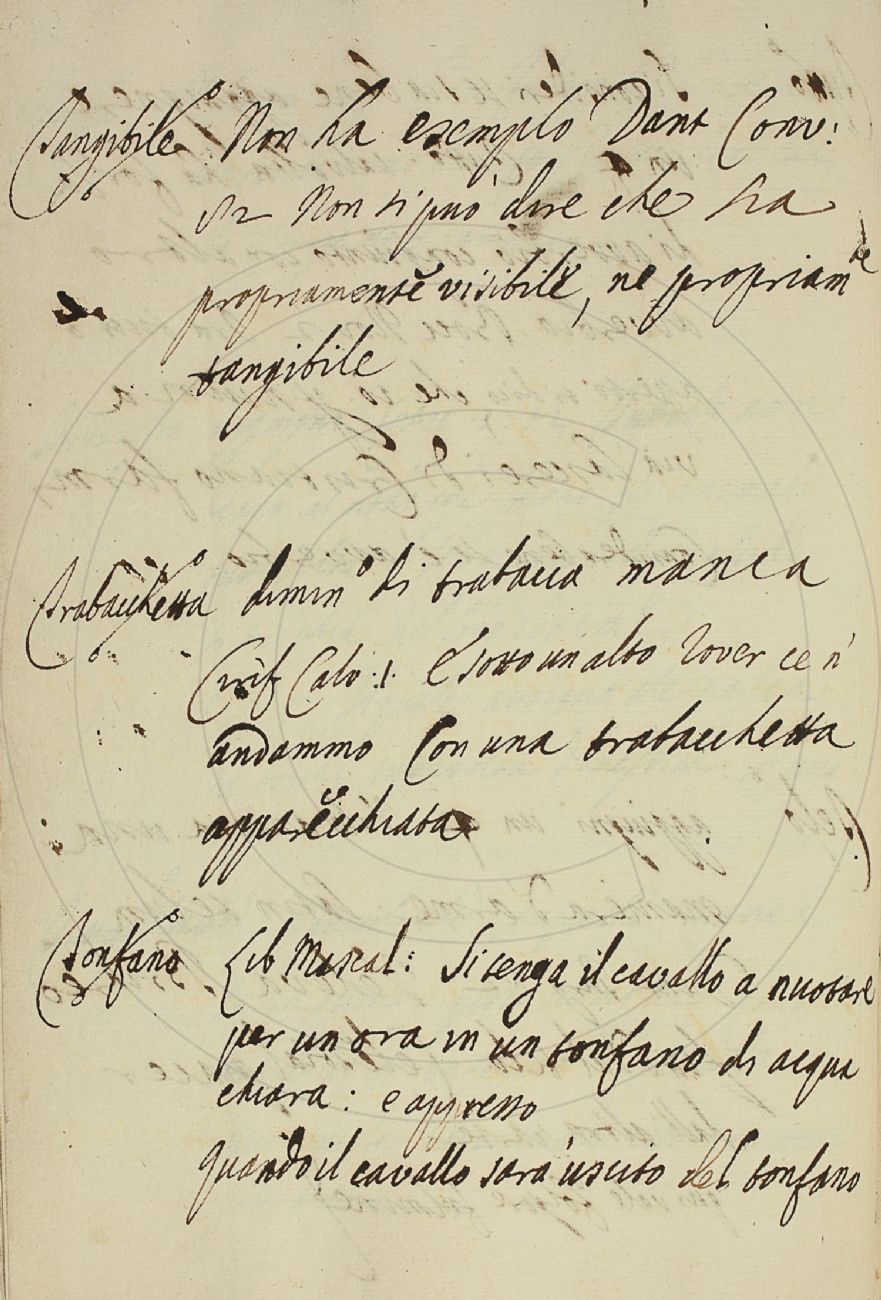 Tangibile Non ha esemplo Dant Conv:
Non si puo' dire che sia
propriamente visibile, ne propriam.te
tangibile
Trabacchetta dimin.o di trabacca manca
Cirif Calv: 1. E sotto un alto rover ce n'
andammo Con una trabacchetta
apparecchiata
Tonfano Lib Mascal: Si tenga il cavallo a nuotare
per un ora in un tonfano di acqua
chiara: e appresso
quando il cavallo sara' uscito del tonfano